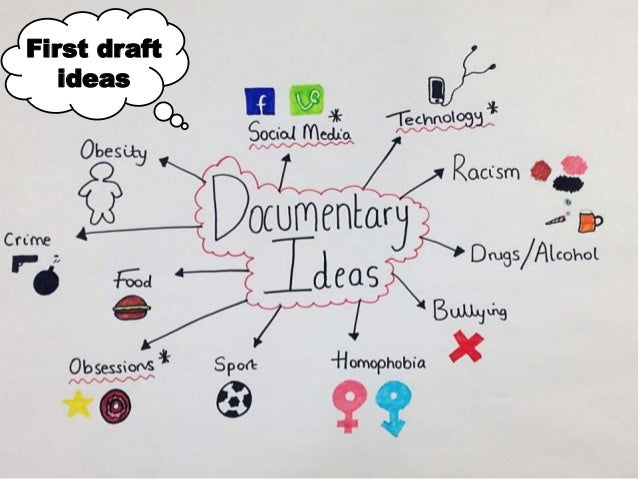 First draft
ideas
Social Media*
Technology*
Obesity
Racism
Crime
Documentary
Ideas
Drugs/Alcohol
Food
Bullying
Obsessions*
Sport
Homophobia
f